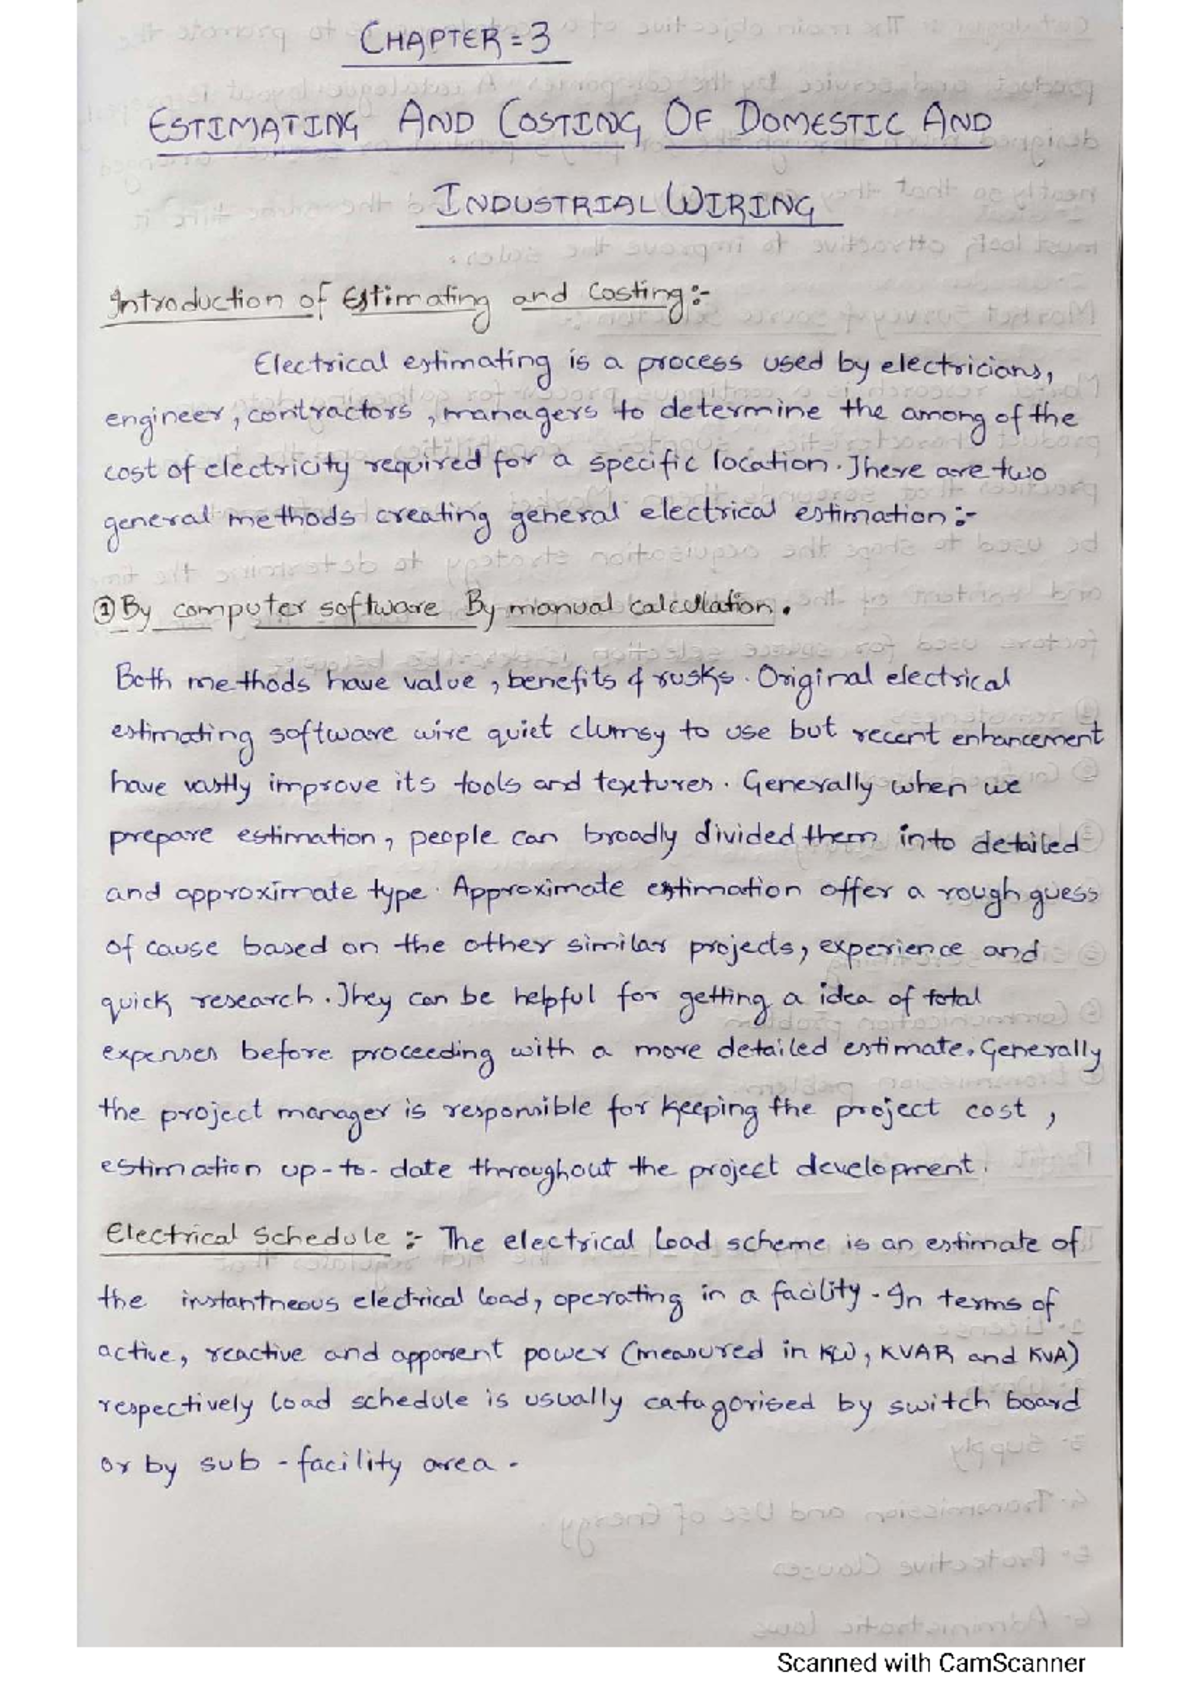 CHAPTER = 3
ESTIMATING AND COSTING OF DOMESTIC AND
INDUSTRIAL WIRING
Introduction of Estimating and Costing :-
Electrical estimating is a process used by electricians,
engineer, contractors, managers to determine the among of the
cost of electricity required for a specific location. There are two
general methods creating general electrical estimation :-
① By computer software By manual calculation.
Both methods have value, benefits & rusks. Original electrical
estimating software wire quiet clumsy to use but recent enhancement
have vastly improve its tools and textures. Generally when we
prepare estimation, people can broadly divided them into detailed
and approximate type. Approximate estimation offer a rough guess
of cause based on the other similar projects, experience and
quick research. They can be helpful for getting a idea of total
expenses before proceeding with a more detailed estimate. Generally
the project manager is responsible for keeping the project cost,
estimation up-to-date throughout the project development.
Electrical Schedule :- The electrical load scheme is an estimate of
the instantneous electrical load, operating in a facility. In terms of
active, reactive and apparent power (measured in KW, KVAR and KVA)
respectively load schedule is usually catagorised by switch board
or by sub-facility area.
Scanned with CamScanner